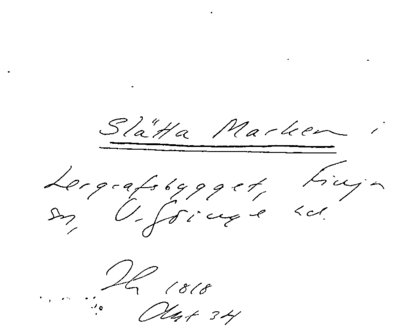 Slätta Marken i
Lergrafsbygget, Finja
sn, V. Göinge hd.
1818